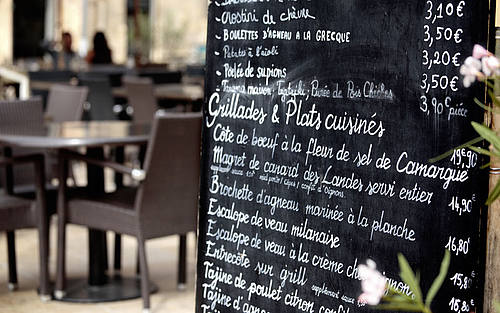 Crostini de chèvre 3,10€
- BOULETTES D'AGNEAU A LA GRECQUE 3,50€
- Patates à l'aïoli 3,20€
- Poêlée de supions 3,50€
maison, Purée de Pois Chiches 3,90€ pièce
Grillades & Plats cuisinés
Côte de boeuf à la fleur de sel de Camargue 19,90
Magret de canard des Landes servi entier
Brochette d'agneau marinée à la planche 14,90€
Escalope de veau milanaise 16,80€
Escalope de veau à la crème
Entrecôte sur grill supplément sauce
Tajine de poulet citron confit
Tajine d'agneau